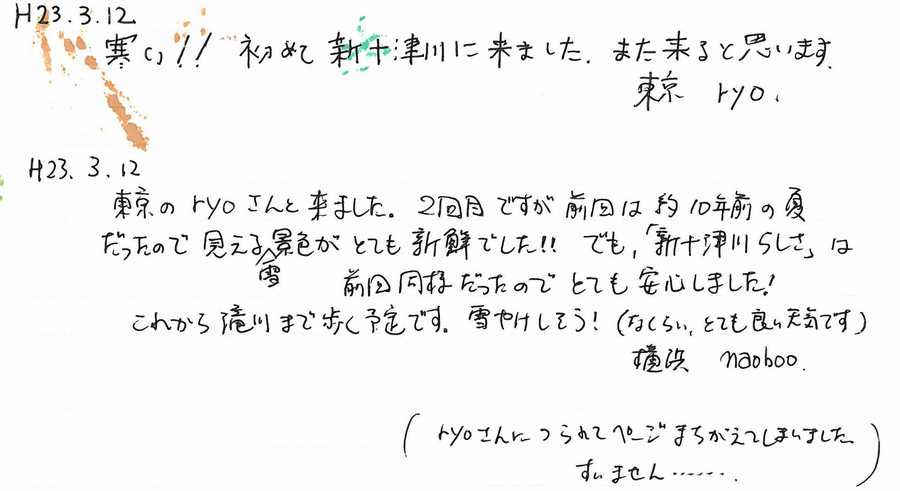 H23.3.12
寒い!! 初めて新十津川に来ました。また来ると思います。
東京 ryo.
H23.3.12
東京のryoさんと来ました。2回目ですが前回は約10年前の夏
だったので見える雪景色がとても新鮮でした!! でも、「新十津川らしさ」は
前回同様だったのでとても安心しました!
これから滝川まで歩く予定です。雪やけしそう!(なくらい、とても良い天気です)
横浜 naoboo.
(ryoさんにつられてページまちがえてしまいました
すいません…….)